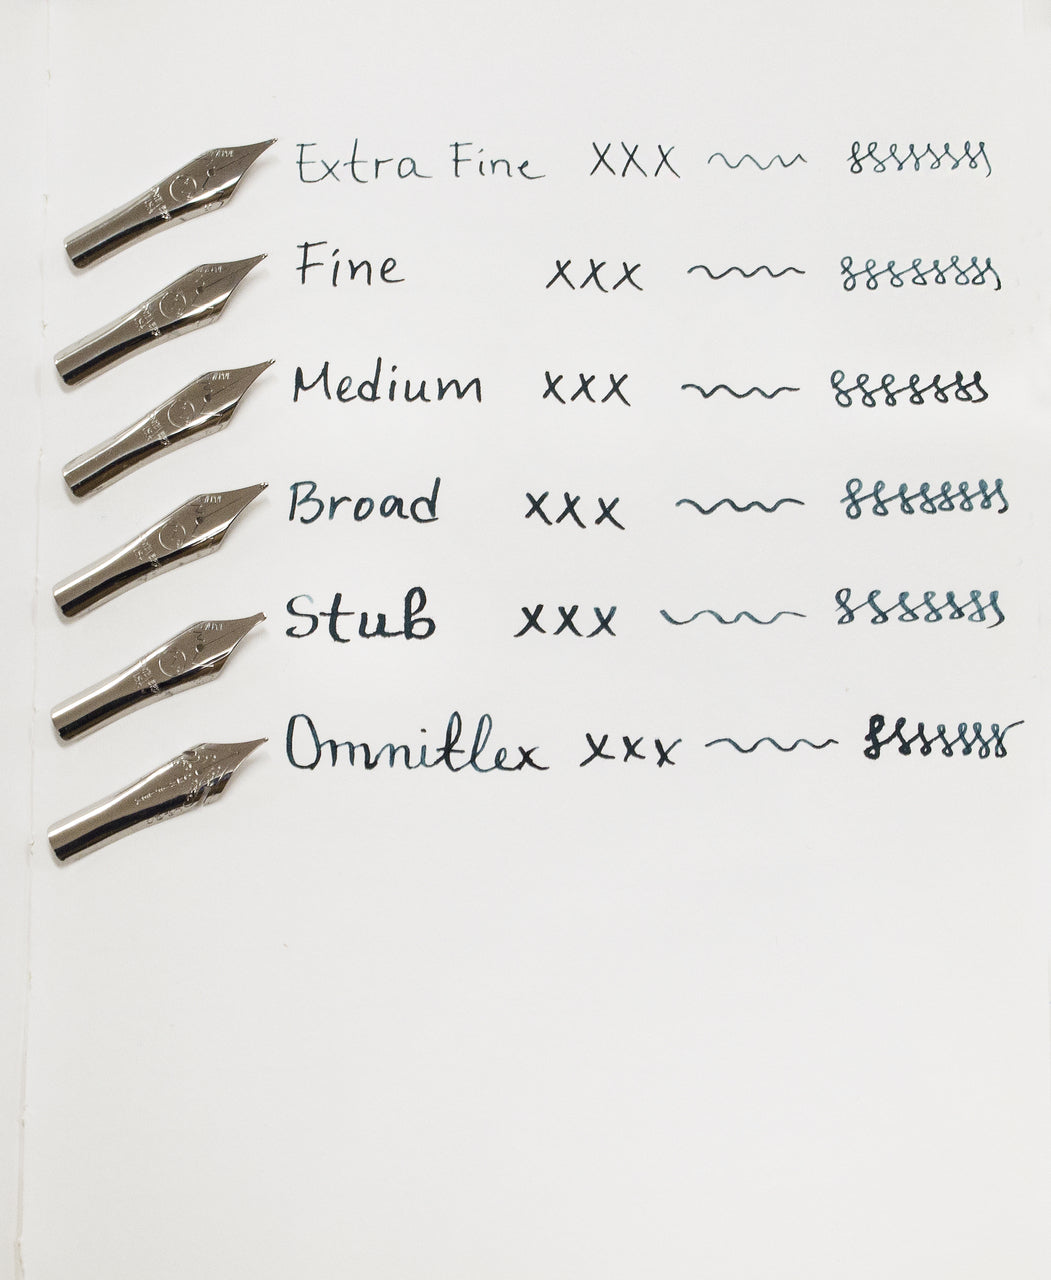 Extra Fine XXX
Fine XXX
Medium XXX
Broad XXX
Stub XXX
Omniflex XXX